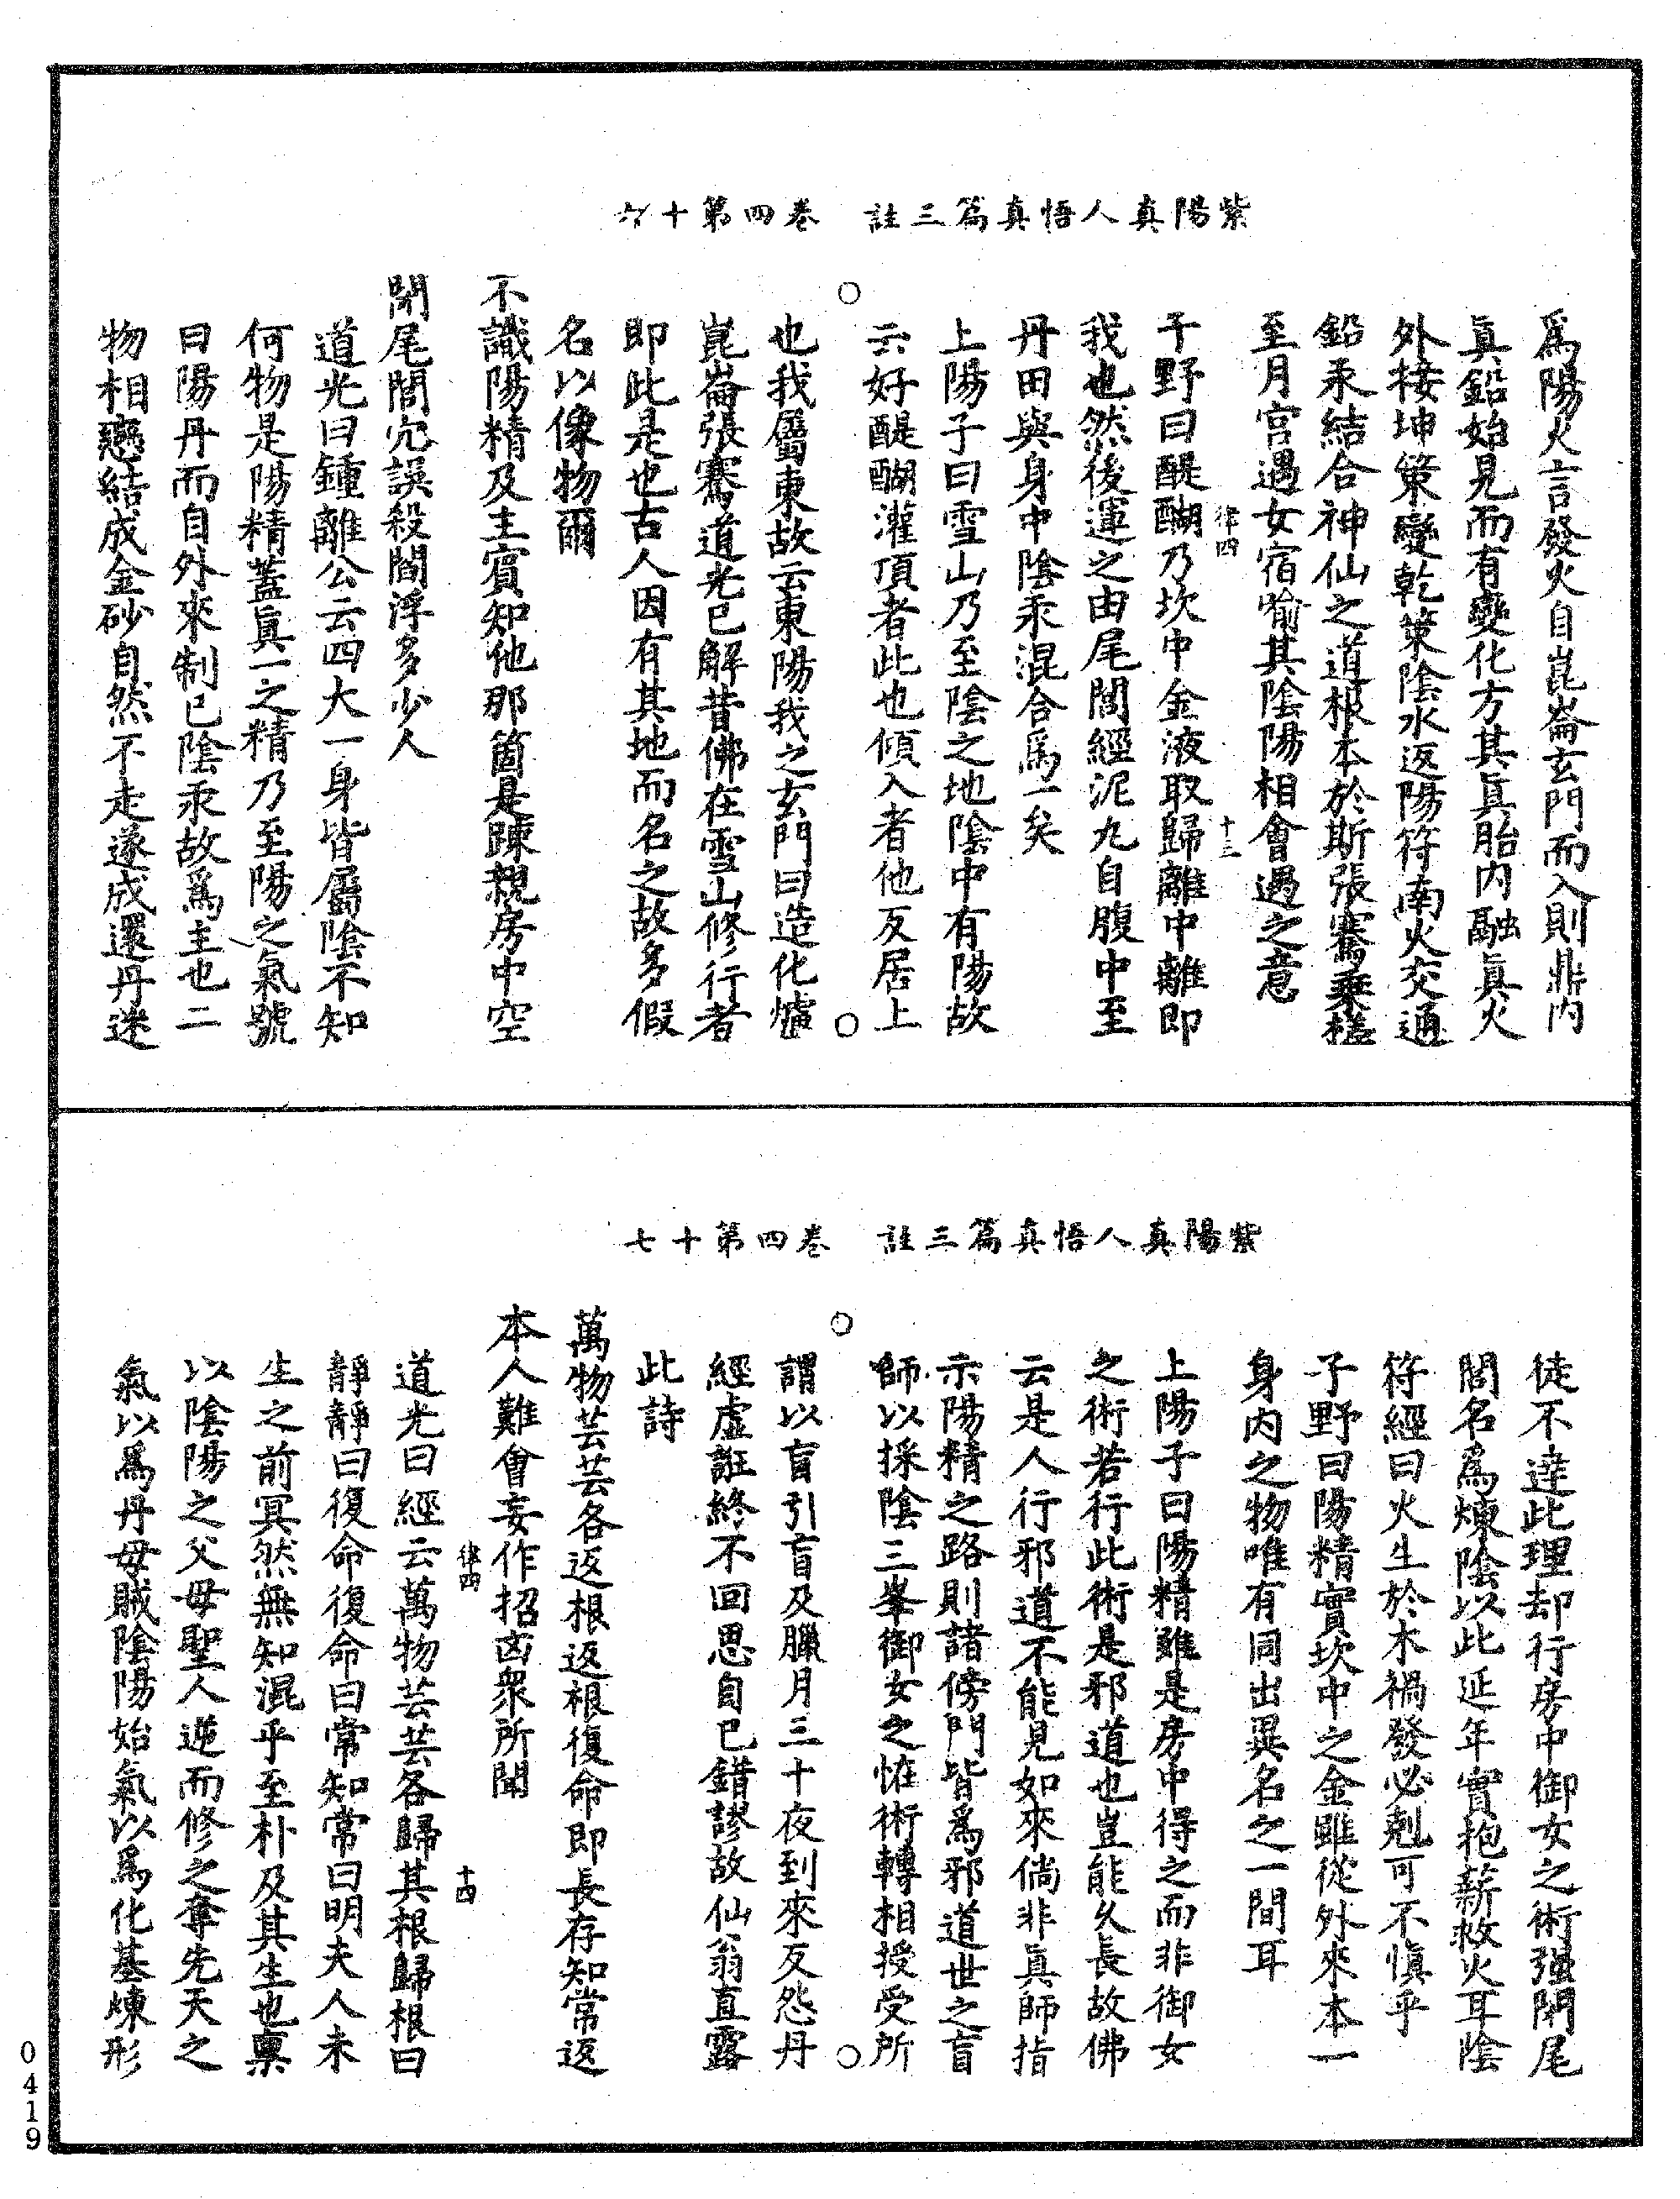 紫陽真人悟真篇三註　卷四第十六
爲陽火言發火自崑崙玄門而入則鼎内
真鉛始見而有變化方其真胎内融真火
外接坤策變乾策陰水返陽符南火交通
鉛汞結合神仙之道根本於斯張騫乗槎
至月宮遇女宿喻其陰陽相會遇之意
律四　十三
子野曰醍醐乃坎中金液取歸離中離即
我也然後運之由尾閭經泥丸自腹中至
丹田與身中陰汞混合爲一矣
上陽子曰雪山乃至陰之地陰中有陽故
云好醍醐灌頂者此也傾入者他反居上
○　○
也我屬東故云東陽我之玄門曰造化爐
崑崙張騫道光已解昔佛在雪山修行者
即此是也古人因有其地而名之故多假
名以像物爾
不識陽精及主賓知他那箇是踈親房中空
閉尾閭穴誤殺閻浮多少人
道光曰鍾離公云四大一身皆屬陰不知
何物是陽精蓋真一之精乃至陽之氣號
曰陽丹而自外來制已陰汞故爲主也二
物相戀結成金砂自然不走遂成還丹迷
紫陽真人悟真篇三註　卷四第十七
徒不達此理却行房中御女之術强閉尾
閭名爲煉陰以此延年實抱薪救火耳陰
符經曰火生於木禍發必剋可不慎乎
子野曰陽精實坎中之金雖從外來本一
身内之物唯有同出異名之一間耳
上陽子曰陽精雖是房中得之而非御女
之術若行此術是邪道也豈能久長故佛
云是人行邪道不能見如來倘非真師指
示陽精之路則諸傍門皆爲邪道世之盲
師以採陰三峯御女之恠術轉相授受所
○　○
謂以盲引盲及臘月三十夜到來反怨丹
經虛誑終不回思自已錯謬故仙翁直露
此詩
萬物芸芸各返根返根復命即長存知常返
本人難會妄作招凶衆所聞
律四　十四
道光曰經云萬物芸芸各歸其根歸根曰
靜靜曰復命復命曰常知常曰明夫人未
生之前冥然無知混乎至朴及其生也禀
以陰陽之父母聖人逆而修之奪先天之
氣以爲丹母賊陰陽始氣以爲化基煉形
0419